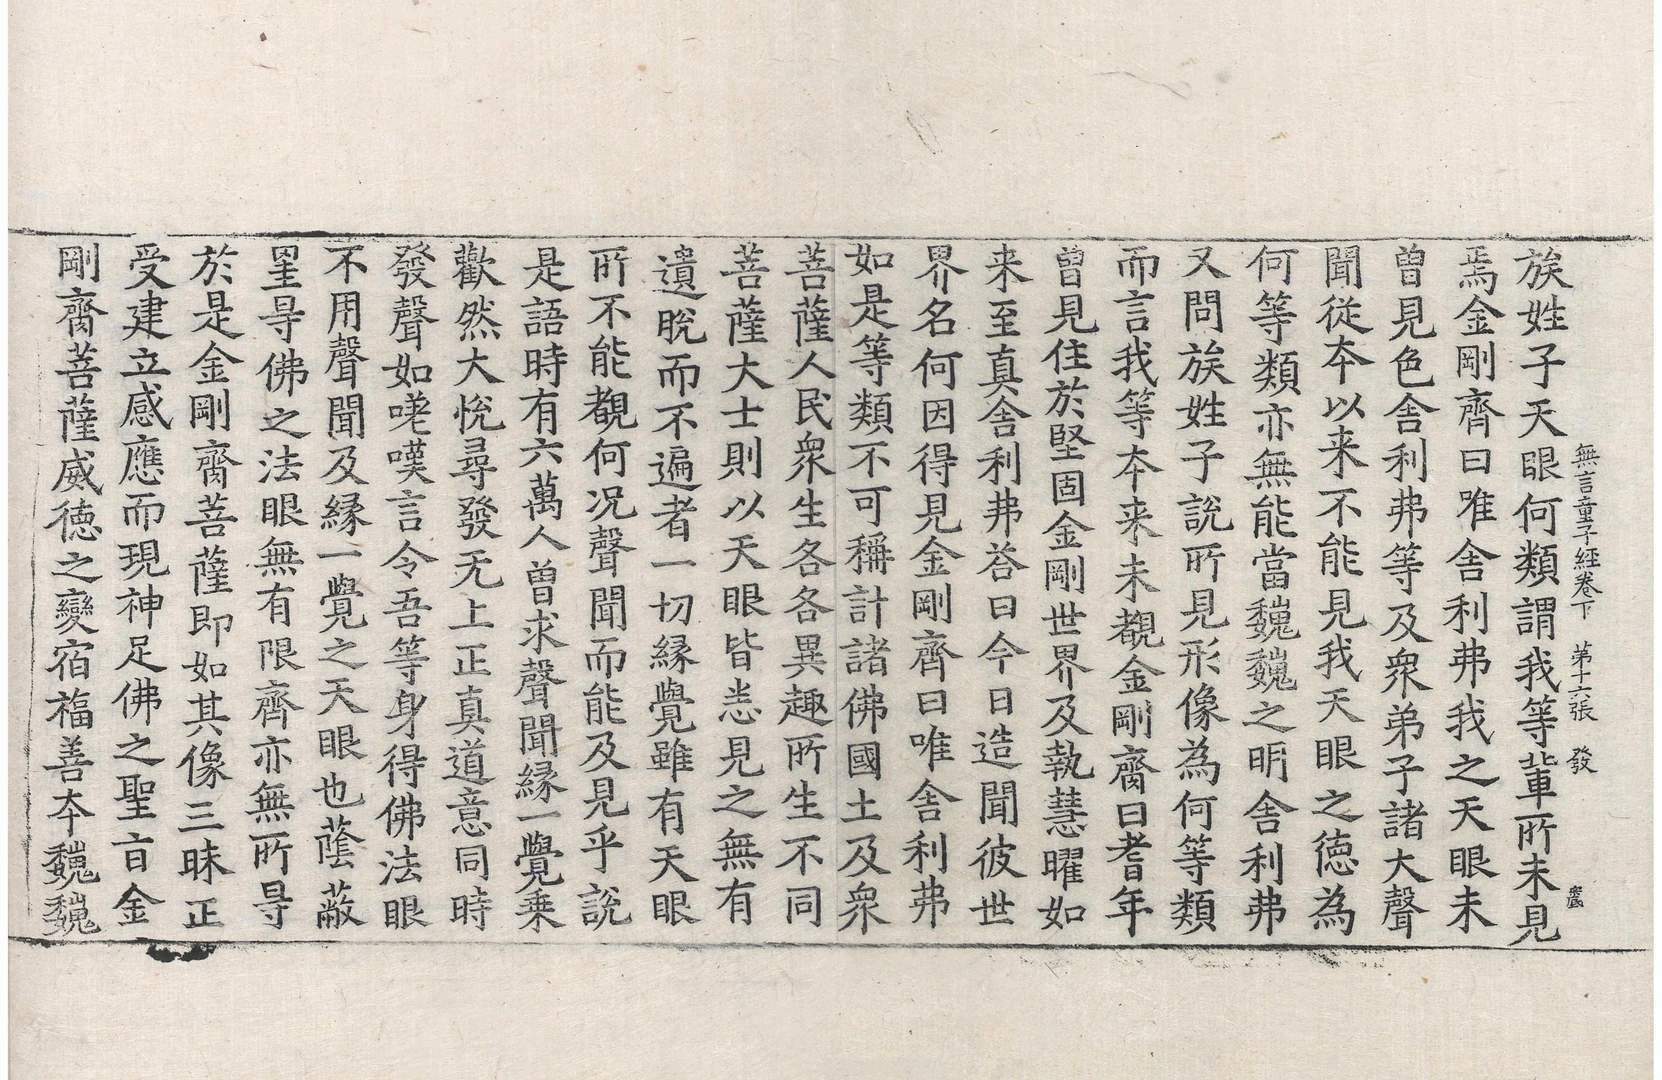 無言童子經卷下　第十六張　發
族姓子天眼何類謂我等輩所未見
焉金剛齊曰唯舍利弗我之天眼未
曾見色舍利弗等及衆弟子諸大聲
聞從本以来不能見我天眼之德為
何等類亦無能當巍巍之明舍利弗
又問族姓子說所見形像為何等類
而言我等本来未覩金剛齊曰耆年
曾見住於堅固金剛世界及執慧曜如
来至真舍利弗荅曰今日造聞彼世
界名何因得見金剛齊曰唯舍利弗
如是等類不可稱計諸佛國土及衆
菩薩人民衆生各各異趣所生不同
菩薩大士則以天眼皆悉見之無有
遺脫而不遍者一切縁覺雖有天眼
所不能覩何况聲聞而能及見乎說
是語時有六萬人曽求聲聞縁一覺乗
歡然大悅尋發无上正真道意同時
發聲如嗟嘆言令吾等身得佛法眼
不用聲聞及縁一覺之天眼也蔭蔽
罣㝵佛之法眼無有限齊亦無所㝵
於是金剛齊菩薩即如其像三昧正
受建立感應而現神足佛之聖旨金
剛齊菩薩威德之變宿福善本巍巍